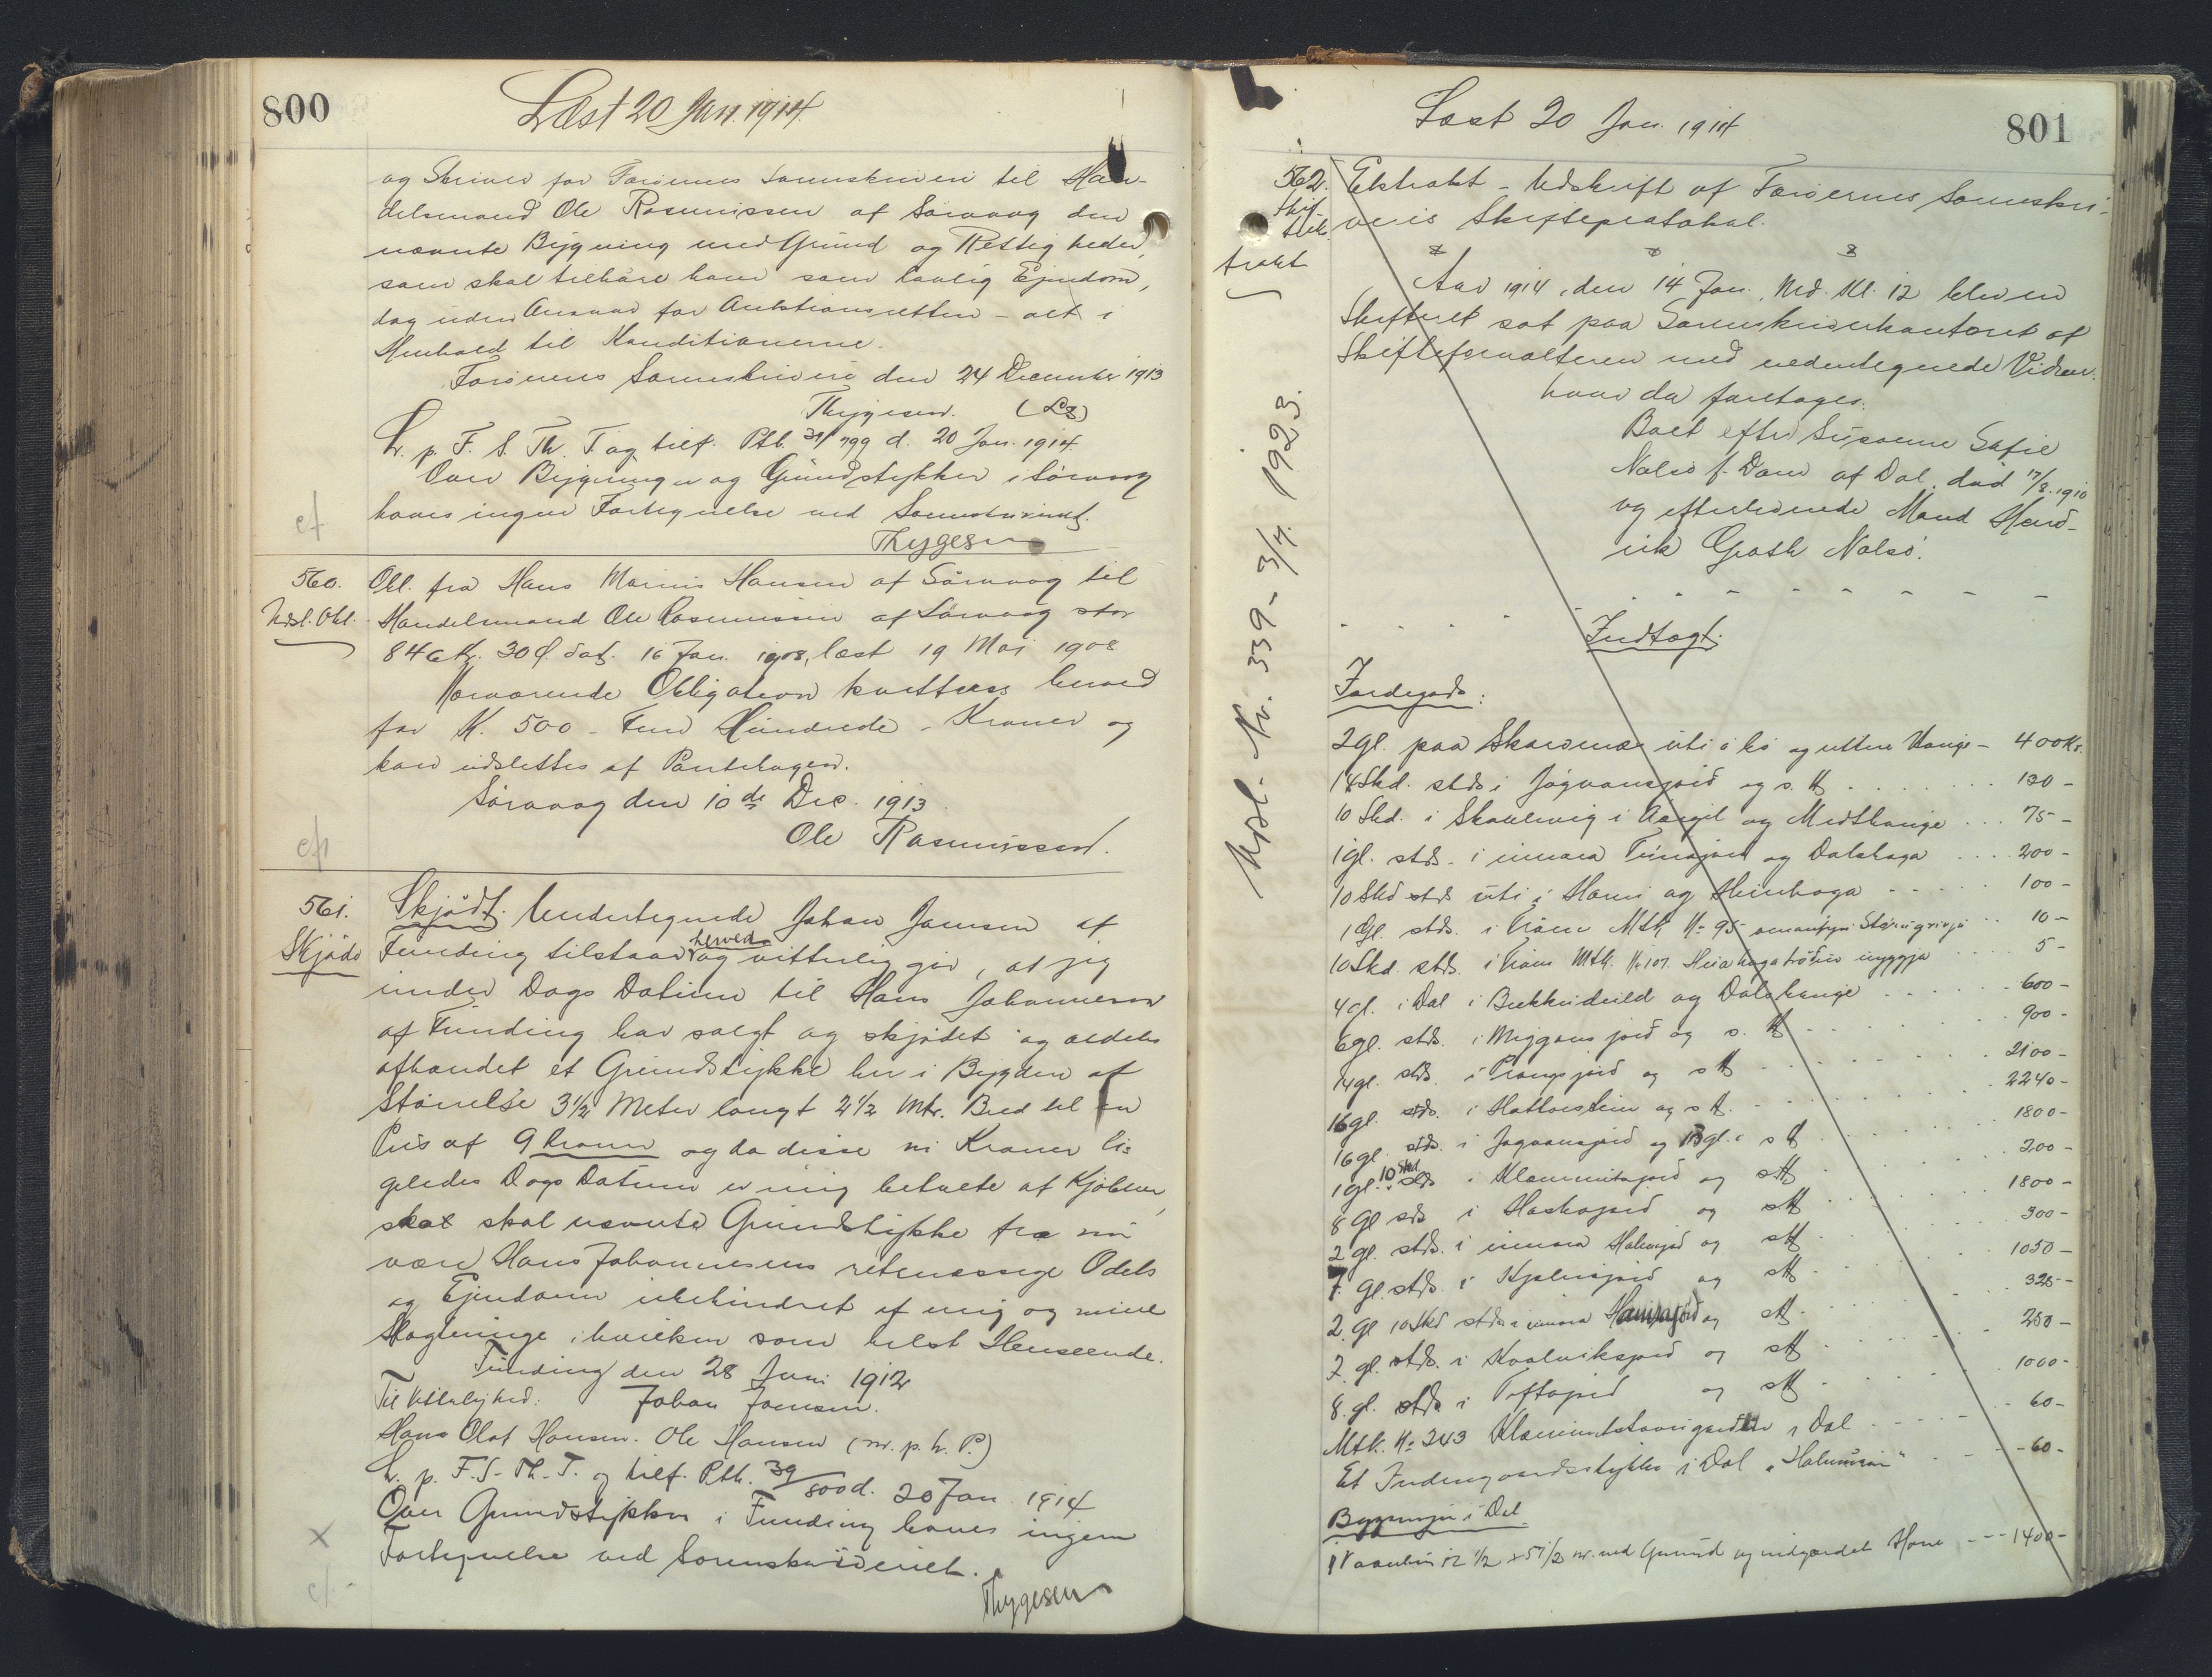 800
Læst 20 Jan. 1914
og Skriver for Færøernes Sorenskriveri til Han-
delsmand Ole Rasmussen af Sörvaag den
nævnte Bygning med Grund og Rettigheder,
som skal tilhöre ham som lovlig Ejendom,
dog uden Ansvar for Auktionsretten - alt i
Henhold til Konditionerne.
Færöernes Sorenskriveri den 24 December 1913
Thygesen. (LS)
L. p. F. S. Th. T og tilf. Ptb. 39/799 d. 20 Jan. 1914.
Over Bygninger og Grundstykker i Sörvaag
haves ingen Fortegnelse ved Sorenskriveriet.
Thygesen
cf
560.
Udsl. Obl.
Obl. fra Hans Marius Hansen af Sörvaag til
Handelsmand Ole Rasmussen af Sörvaag stor
846 Kr. 30 Ø dat. 16 Jan. 1908, læst 19 Maj 1908
Nærværende Obligation kvitteres herved
for K. 500 - Fem Hundrede - Kroner og
kan udslettes af Pantebogen.
Sörvaag den 10de Dec. 1913.
Ole Rasmussen.
cf
561.
Skjöde
Skjödt. Undertegnede Johan Joensen af
Funding tilstaar herved og vitterlig gör, at jeg
under Dags Datum til Hans Johannesen
af Funding har solgt og skjödet og aldeles
afhandet et Grundstykke her i Bygden af
Störrelse 3½ Meter langt 2½ Mtr. Bred til en
Pris af 9 Kroner og da disse ni Kroner li-
geledes Dags Datum er mig betalte af Kjöberen,
skal skal nævnte Grundstykke fra nu
være Hans Johannesens retmæssige Odels
og Ejendom ubehindret af mig og mine
Slægtninge i hvilken som helst Henseende.
Funding den 28 Juni 1912
Til Vitterlighed: Johan Joensen.
Hans Olaf Hansen. Ole Hansen (m. p. h. P.)
L. p. F. S. Th. T. og tilf. Ptb. 39/800 d. 20 Jan. 1914
Over Grundstykker i Funding haves ingen
Fortegnelse ved Sorenskriveriet.
Thygesen
x
cf.
801
Læst 20 Jan. 1914
562.
Skif-
teek-
trakt
Udsl. Nr. 339 - 3/4. 1923.
Ekstrakt - Udskrift af Færöernes Sorenskri-
veris Skifteprotokol.
Aar 1914, den 14 Jan. Md. Kl. 12 blev en
Skifteret sat paa Sorenskriverkontoret af
Skifteforvalteren med nedentegnede Vidner.
hvor da foretoges.
Boet efter Susanne Sofie
Nolsö f. Dam af Dal, död 17/8. 1910
og efterlevende Mand Hend-
rik Groth Nolsö.
Indtægt.
Jordegods:
2 gl. paa Skarvenæs úti á Lö og uttere Hauge - 400 Kr.
14 Skd. stds i Jógvansjörd og s. H. 130 -
10 Skd. i Skaalevig i Aargil og Midthauge 75 -
1 gl. stds. i innara Túnsjörd og Dalshaga 200 -
10 Skd stds úti i Hami og Heimhaga 100 -
1 Gl. stds. i Tröm Mtk No 95 omanfyri Stóru gröv 10 -
10 Skd. stds. i Tröm Mtk. No 107. 5 -
4 gl. i Dal i Brekkudeild og Dalshauge 600 -
6 gl. stds. i Miggans jörd og s. H 900 -
14 gl. stds. i jörd og s H 2100 -
16 gl. stds. i Hattarstein og s H. 2240 -
16 gl. stds. i Jogvansjörd og 13 gl. i s H 1800 -
1 gl. 10 Skd stds i Klæmintsjörd og s H 200 -
8 Gl sds i Haskajörd og s H 1800 -
2 gl. stds. i innara Halmjörd og s H 300 -
7. gl. stds. i Kjalsjörd og s H 1050 -
2. gl 10 Skd stds i innara Hamrajörd og s H. 325 -
2. gl. stds. i Kvalviksjörd og s H 250 -
8. gl. stds i Toftajörd og s H 1000 -
Mtk. No 243 Klæmintstovugærdi i Dal 60 -
Et Indengaardsstykke i Dal 60 -
Bygninger i Dal.
1 Vaaanhus 12 ½ x 5 1/2 m. med Grund og indgærdet Have 1400 -